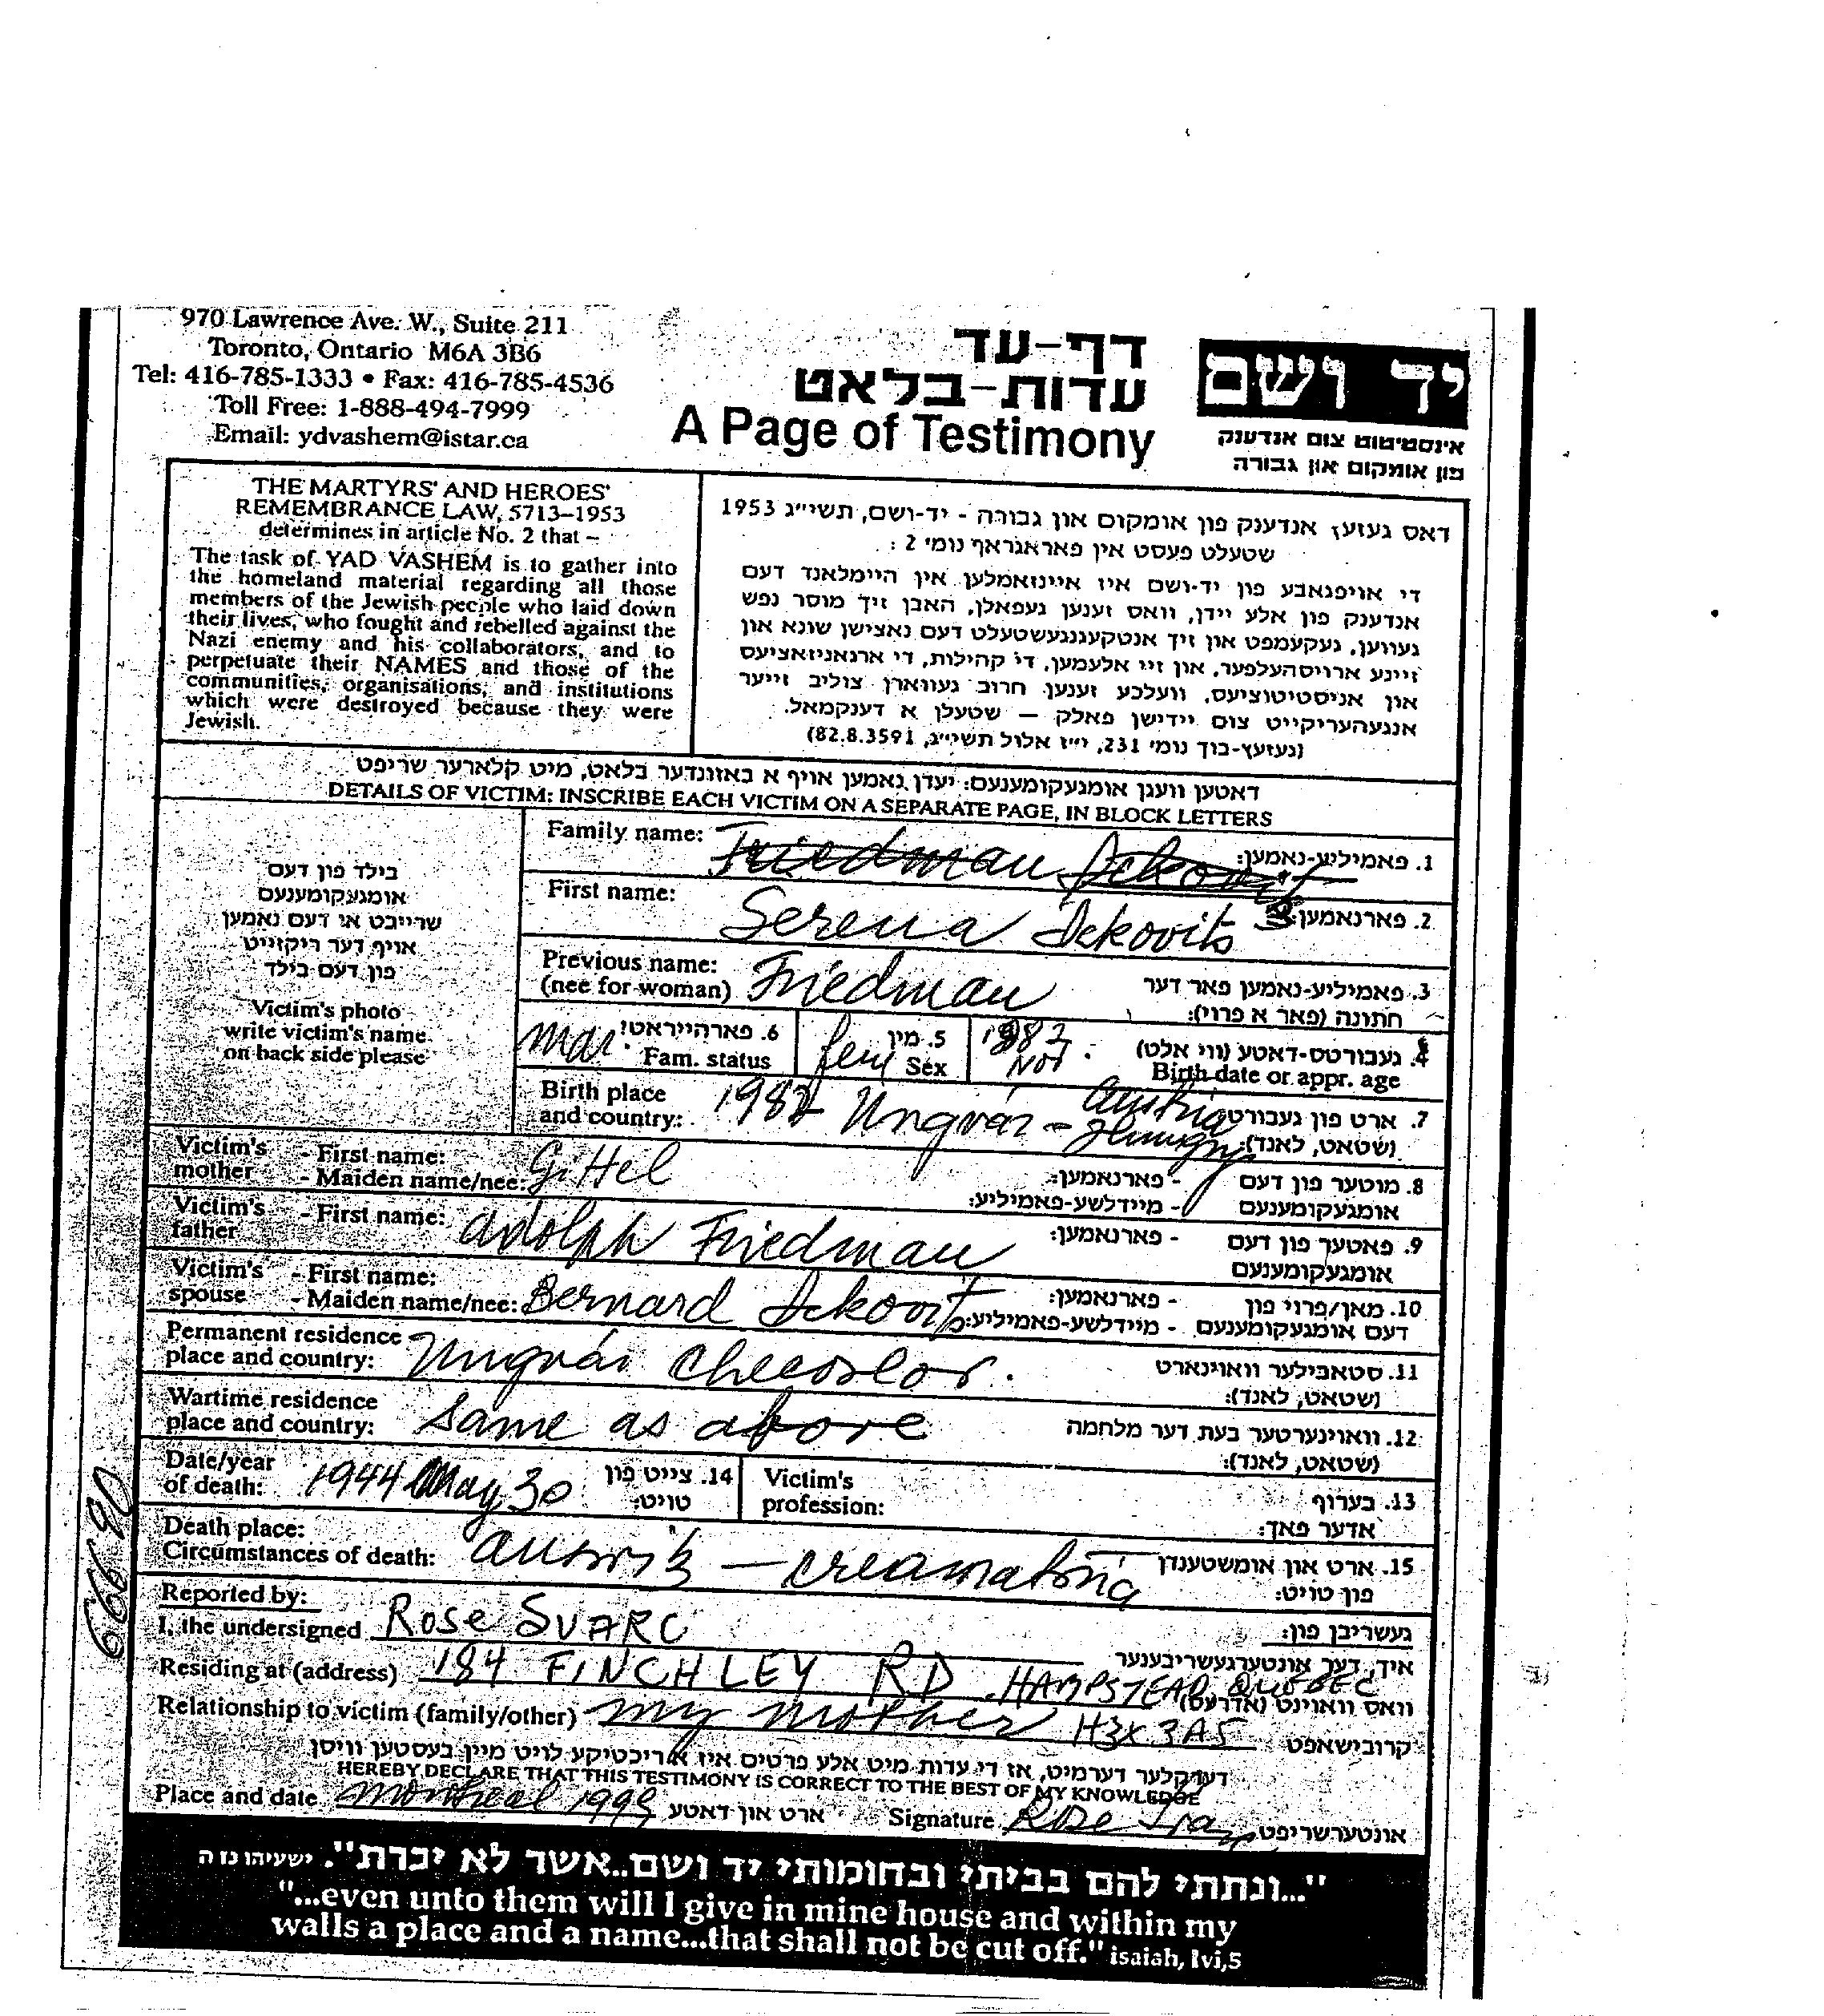 970 Lawrence Ave. W., Suite 211
Toronto, Ontario M6A 3B6
Tel: 416-785-1333 • Fax: 416-785-4536
Toll Free: 1-888-494-7999
Email: ydvashem@istar.ca
דף-עד
עדות-בלאט
A Page of Testimony
יד ושם
אינסטיטוט צום אנדענק
פון אומקום און גבורה
THE MARTYRS' AND HEROES'
REMEMBRANCE LAW, 5713–1953
determines in article No. 2 that –
The task of YAD VASHEM is to gather into
the homeland material regarding all those
members of the Jewish people who laid down
their lives, who fought and rebelled against the
Nazi enemy and his collaborators, and to
perpetuate their NAMES and those of the
communities, organisations, and institutions
which were destroyed because they were
Jewish.
דאס געזעץ אנדענק פון אומקום און גבורה - יד-ושם, תשי״ג 1953
שטעלט פעסט אין פאראגראף נומ׳ 2 :
די אויפגאבע פון יד-ושם איז איינזאמלען אין היימלאנד דעם
אנדענק פון אלע יידן, וואס זענען געפאלן, האבן זיך מוסר נפש
געווען, געקעמפט און זיך אנטקעגנגעשטעלט דעם נאצישן שונא און
זיינע ארויסהעלפער, און זיי אלעמען, די קהילות, די ארגאניזאציעס
און אניסטיטוציעס, וועלכע זענען חרוב געווארן צוליב זייער
אנגעהעריקייט צום יידישן פאלק – שטעלן א דענקמאל.
(געזעץ-בוך נומ׳ 231, י״ז אלול תשי״ג, 82.8.3591)
דאטען וועגן אומגעקומענעם: יעדן נאמען אויף א באזונדער בלאט, מיט קלארער שריפט
DETAILS OF VICTIM: INSCRIBE EACH VICTIM ON A SEPARATE PAGE, IN BLOCK LETTERS
בילד פון דעם
אומגעקומענעם
שרייבט אז דעם נאמען
אויף דער ריקזייט
פון דעם בילד
Victim's photo
write victim's name
on back side please
Family name: Friedman Ickovits 1. פאמיליע-נאמען:
First name: Serena Ickovits 2. פארנאמען:
Previous name:
(nee for woman) Friedman 3. פאמיליע-נאמען פאר דער
חתונה (פאר א פרוי):
mar. 6. פארהייראט!
Fam. status
fem 5. מין
Sex
Nov. 4. געבורטס-דאטע (ווי אלט)
Birth date or appr. age
Birth place
and country: 1982 Ungvár - Austria 7. ארט פון געבורט
(שטאט, לאנד):
Victim's mother - First name:
- Maiden name/nee: Gittel
- פארנאמען: 8. מוטער פון דעם
- מיידלשע-פאמיליע: אומגעקומענעם
Victim's father - First name: Adolph Friedman
- פארנאמען: 9. פאטער פון דעם
אומגעקומענעם
Victim's spouse - First name:
- Maiden name/nee: Bernard Ickovits
- פארנאמען: 10. מאן/פרוי פון
- מיידלשע-פאמיליע: דעם אומגעקומענעם
Permanent residence
place and country: Ungvár Checoslov. 11. סטאבילער וואוינארט
(שטאט, לאנד):
Wartime residence
place and country: Same as above 12. וואוינערטער בעת דער מלחמה
(שטאט, לאנד):
Date/year
of death: 1944 May 30 14. צייט פון
טויט:
Victim's
profession: 13. בערוף
אדער פאך:
Death place:
Circumstances of death: Ausvitz – creamatoria 15. ארט און אומשטענדן
פון טויט:
Reported by: געשריבן פון:
I, the undersigned Rose SVARC איך, דער אונטערגעשריבענער
Residing at (address) 184 FINCHLEY RD. HAMPSTEAD QUEBEC וואס וואוינט (אדרעס)
Relationship to victim (family/other) my mother H3X 3A5 קרובישאפט
דערקלער דערמיט, אז די עדות מיט אלע פרטים איז א ריכטיקע לויט מיין בעסטען וויסן
HEREBY DECLARE THAT THIS TESTIMONY IS CORRECT TO THE BEST OF MY KNOWLEDGE
Place and date Montreal 1999 ארט און דאטע Signature Rose אונטערשריפט
"...ונתתי להם בביתי ובחומותי יד ושם..אשר לא יכרת". ישעיהו נז ה
"...even unto them will I give in mine house and within my
walls a place and a name...that shall not be cut off." isaiah, lvi,5